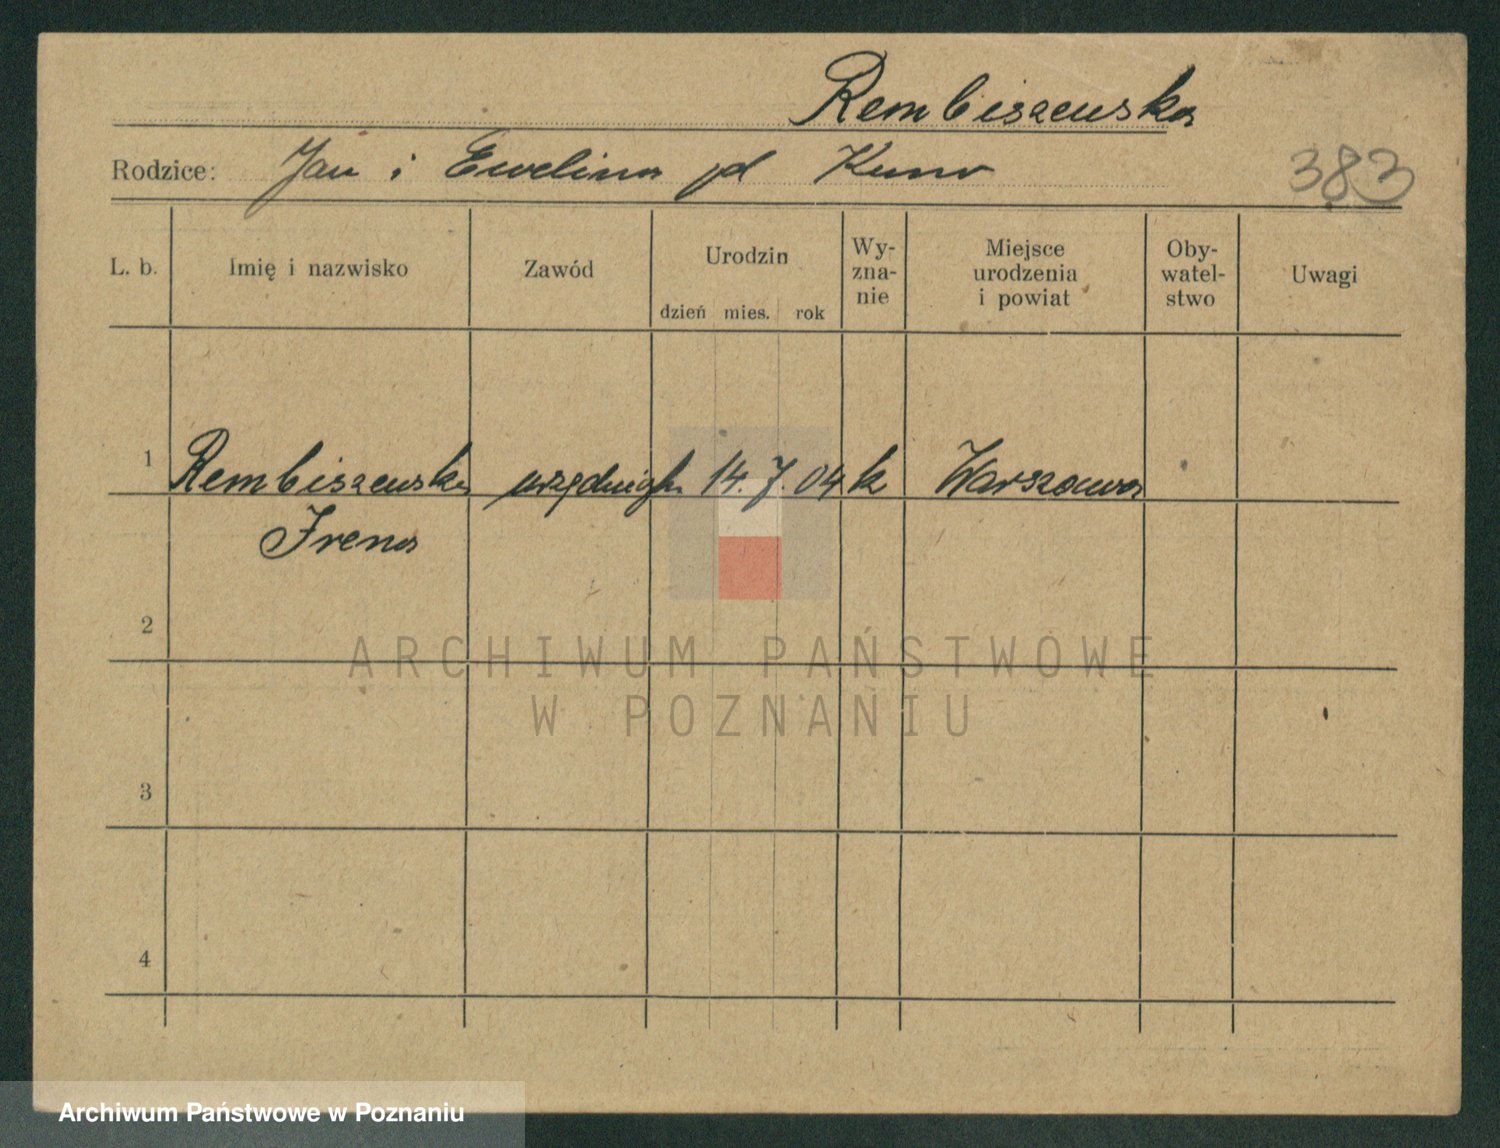 Rembiszewska
Rodzice: Jan i Ewelina
383
L. b.
Imię i nazwisko
Zawód
Urodzin
dzień mies. rok
Wy-
zna-
nie
Miejsce
urodzenia
i powiat
Oby-
watel-
stwo
Uwagi
1 Rembiszewska 14. 7. 04 k Warszawa
Irena
2
ARCHIWUM PAŃSTWOWE
W POZNANIU
3
4
Archiwum Państwowe w Poznaniu